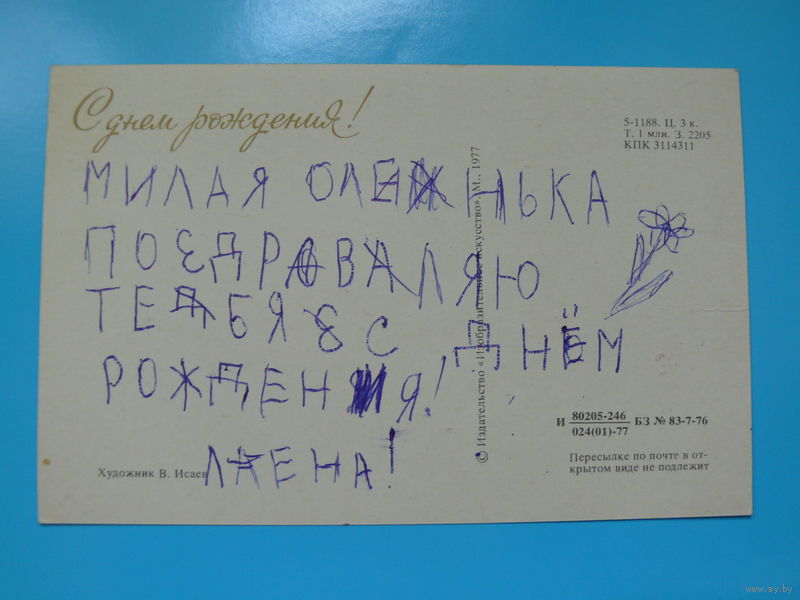 С днем рождения!
5-1188. Ц. 3 к.
Т. 1 млн. З. 2205
КПК 3114311
МИЛАЯ ОЛЕНЬКА
ПОЗДРАВАЛЯЮ
ТЕБЯ С ДНЁМ
РОЖДЕНИЯ!
ЛЕНА!
© Издательство «Изобразительное искусство». М., 1977
И 80205-246 БЗ № 83-7-76
024(01)-77
Пересылке по почте в от-
крытом виде не подлежит
Художник В. Исаев
www.ay.by